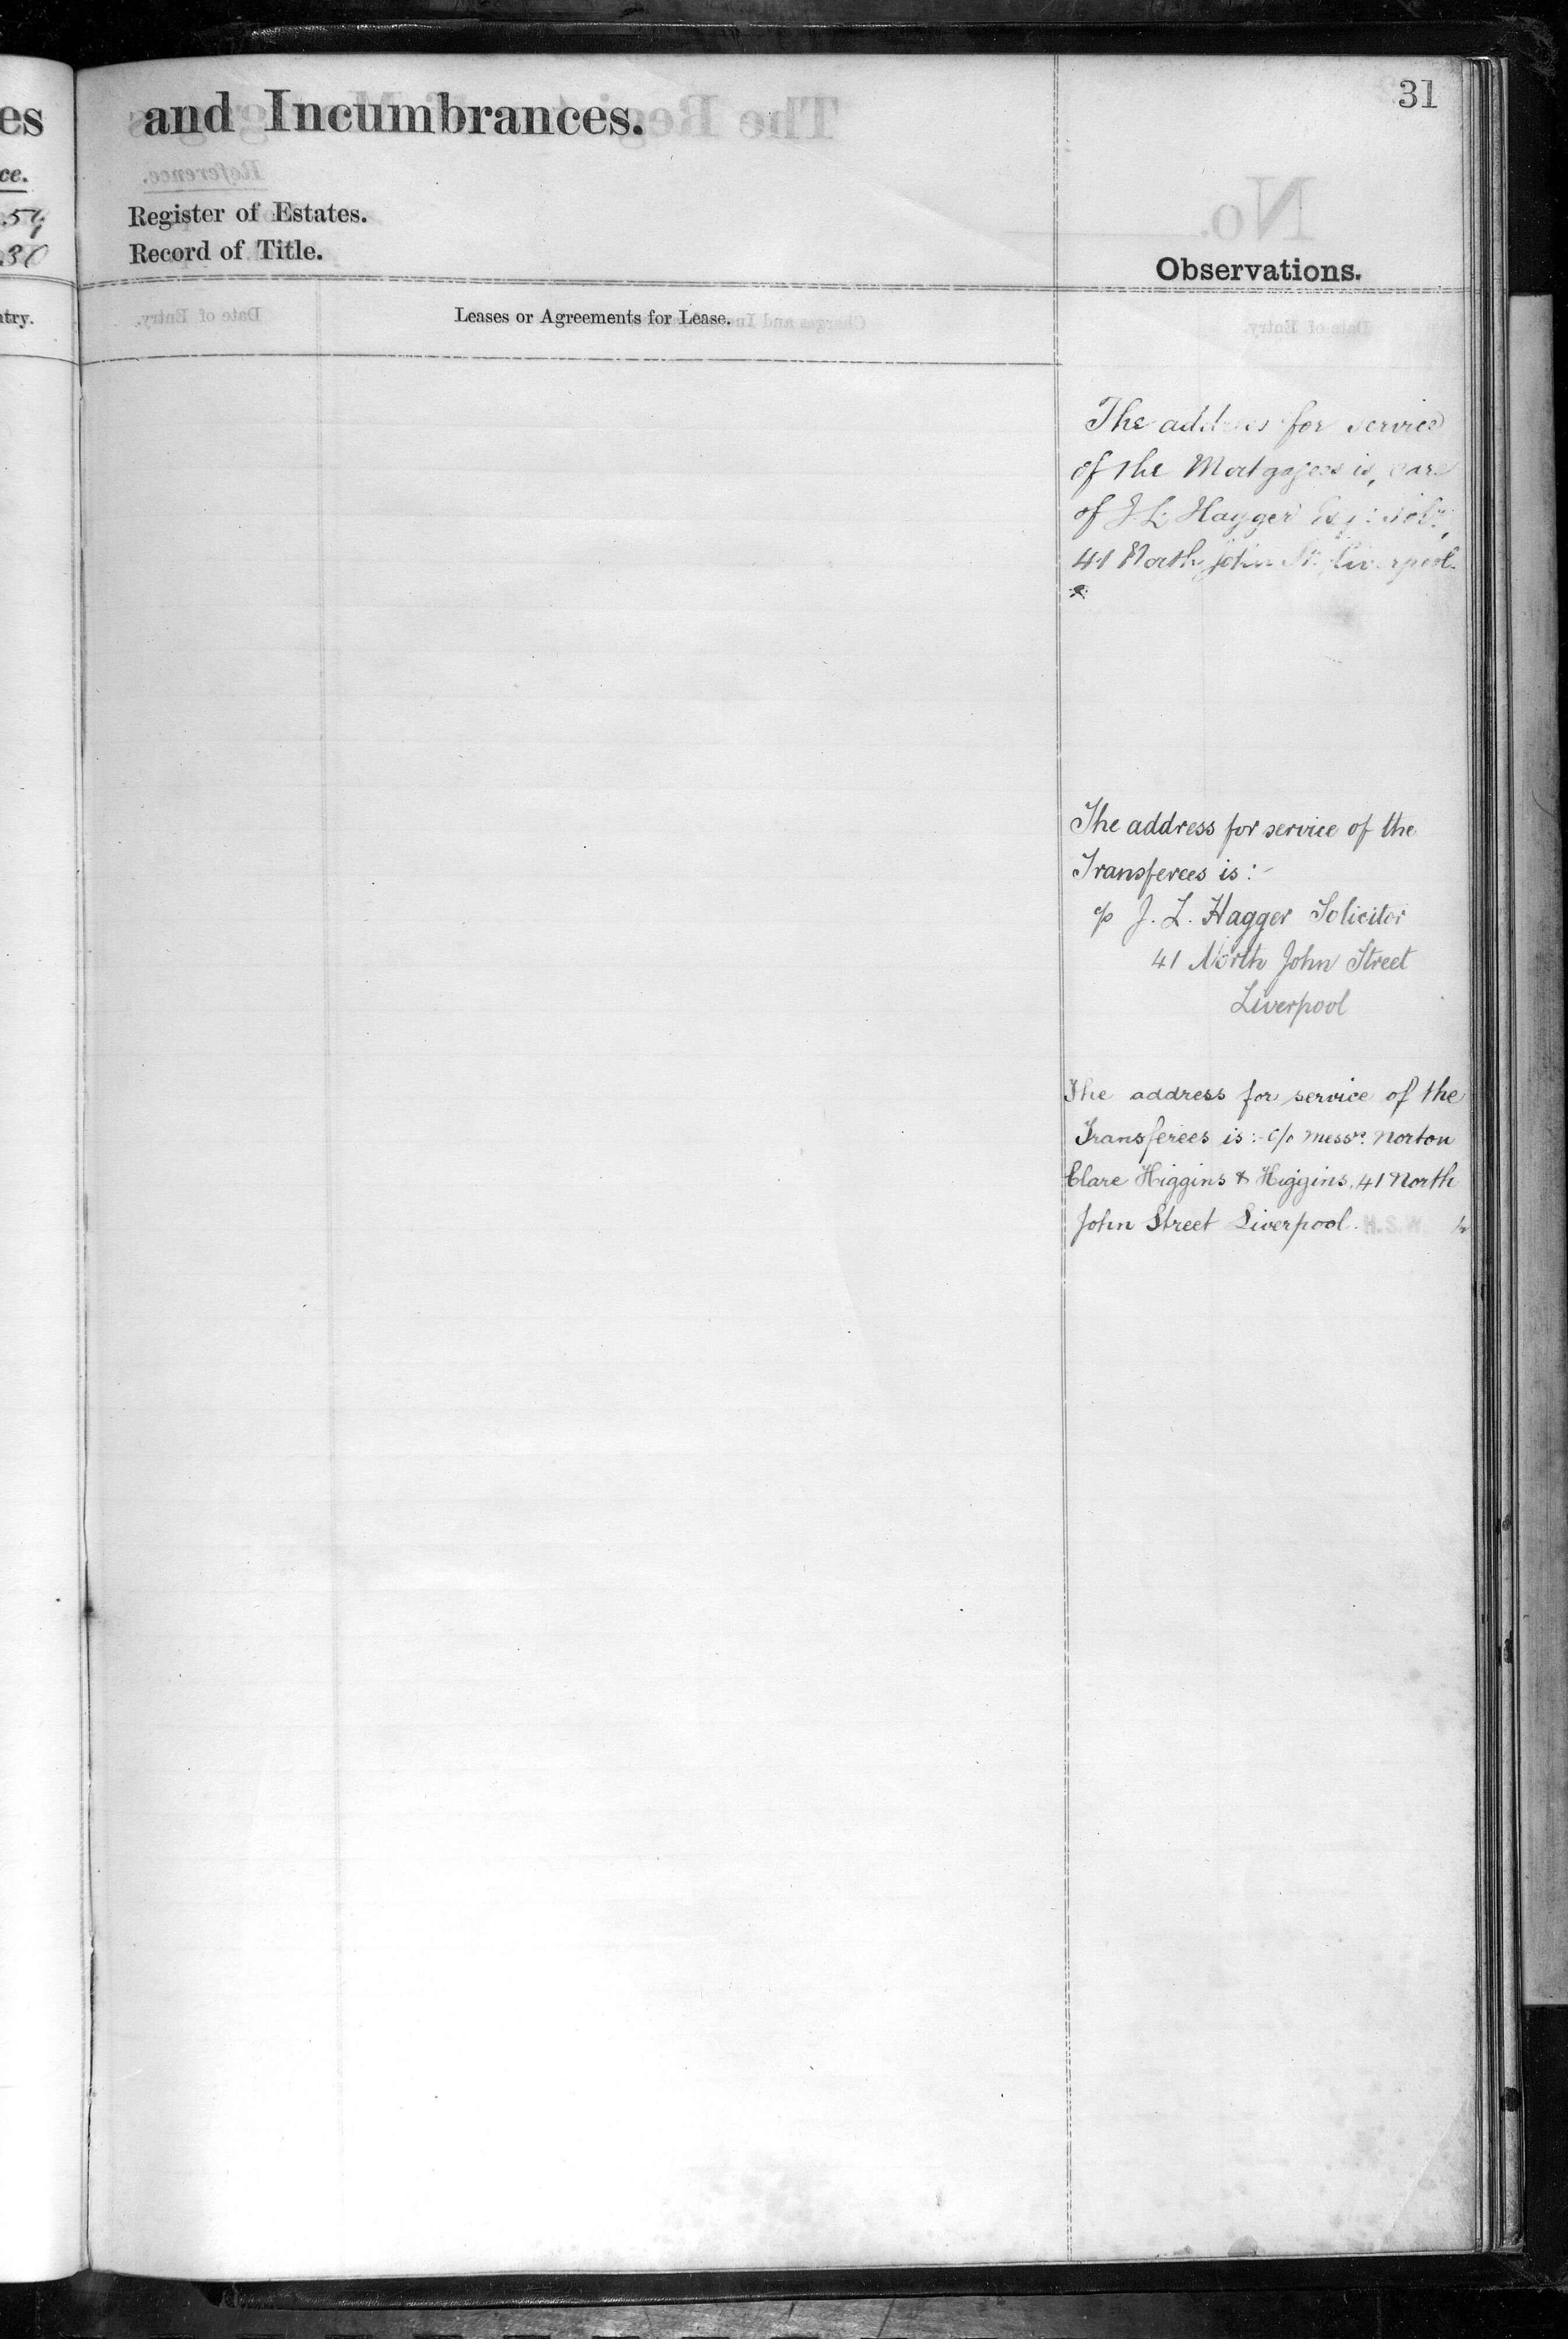 es
ce.
.30
try.
and Incumbrances.
31
Register of Estates.
Record of Title.
Observations.
Leases or Agreements for Lease.
The address for service
of the Mortgagees is, care
of J. L. Hagger Esq: Solr.,
41 North John St. Liverpool.
The address for service of the
Transferees is:-
c/o J. L. Hagger Solicitor
41 North John Street
Liverpool
The address for service of the
Transferees is:- c/o Messrs. Norton
Clare Higgins & Higgins. 41 North
John Street Liverpool. H.S.W.